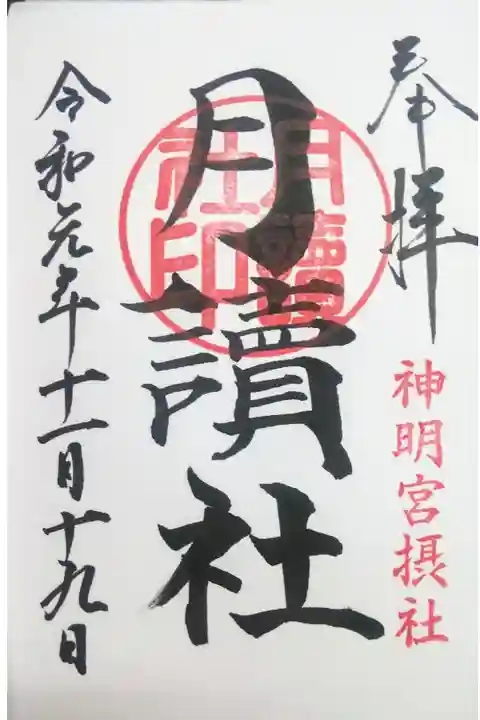 奉拝
神明宮摂社
月讀社
月讀
社印
令和元年十一月十九日